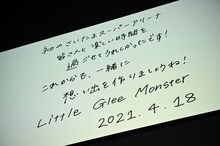 初のさいたまスーパーアリーナ
皆さんと楽しい時間を
過ごせてうれしかったです!
これからも、一緒に
想い出を作りましょうね!
Little Glee Monster
2021.4.18